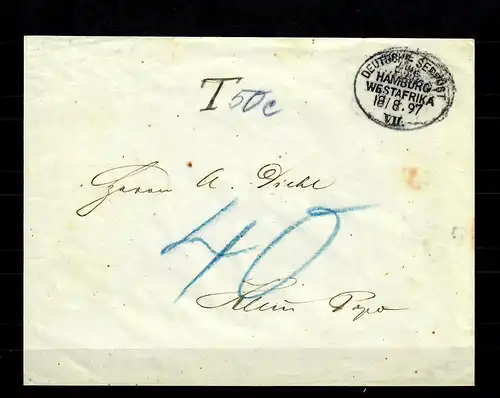 DEUTSCHE SEEPOST
LINIE
HAMBURG
WESTAFRIKA
18/8.97
VII.
T 50c
Herrn A. Diehl
40
Klein Popo